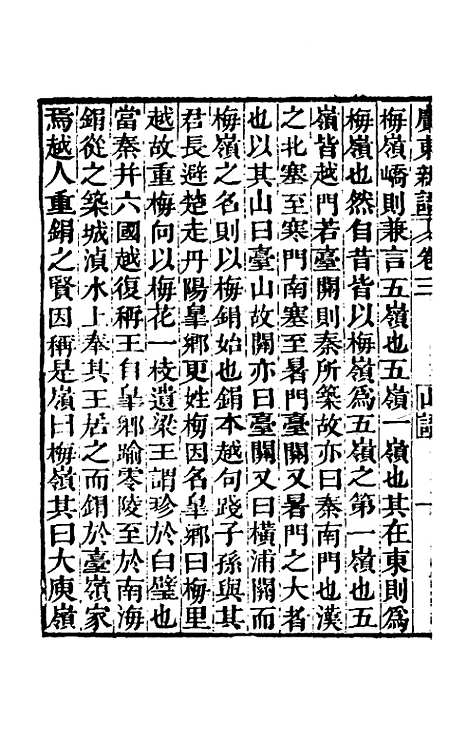 廣東新語 卷三 山語
梅嶺嶠則兼言五嶺也五嶺一嶺也其在東則爲
梅嶺也然自昔皆以梅嶺爲五嶺之第一嶺也五
嶺皆越門若臺關則秦所築故亦曰秦南門也漢
之北塞至寒門南塞至暑門臺關又暑門之大者
也以其山曰臺山故關亦曰臺關又曰橫浦關而
梅嶺之名則以梅鋗始也鋗本越句踐子孫與其
君長避楚走丹陽臯鄉更姓梅因名臯鄉曰梅里
越故重梅向以梅花一枝遺梁王謂珍於白璧也
當秦并六國越復稱王自臯鄉踰零陵至於南海
鋗從之築城湞水上奉其王居之而鋗於臺嶺家
焉越人重鋗之賢因稱是嶺曰梅嶺其曰大庾嶺